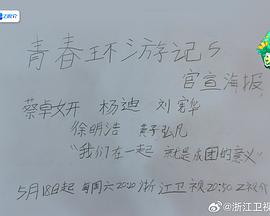 Z视介
青春环游记5
官宣海报
蔡卓妍 杨迪 刘宪华
徐明浩 黄子弘凡
“我们在一起 就是成团的意义”
5月18日起 每周六2020 浙江卫视20:50 Z视介
@浙江卫视